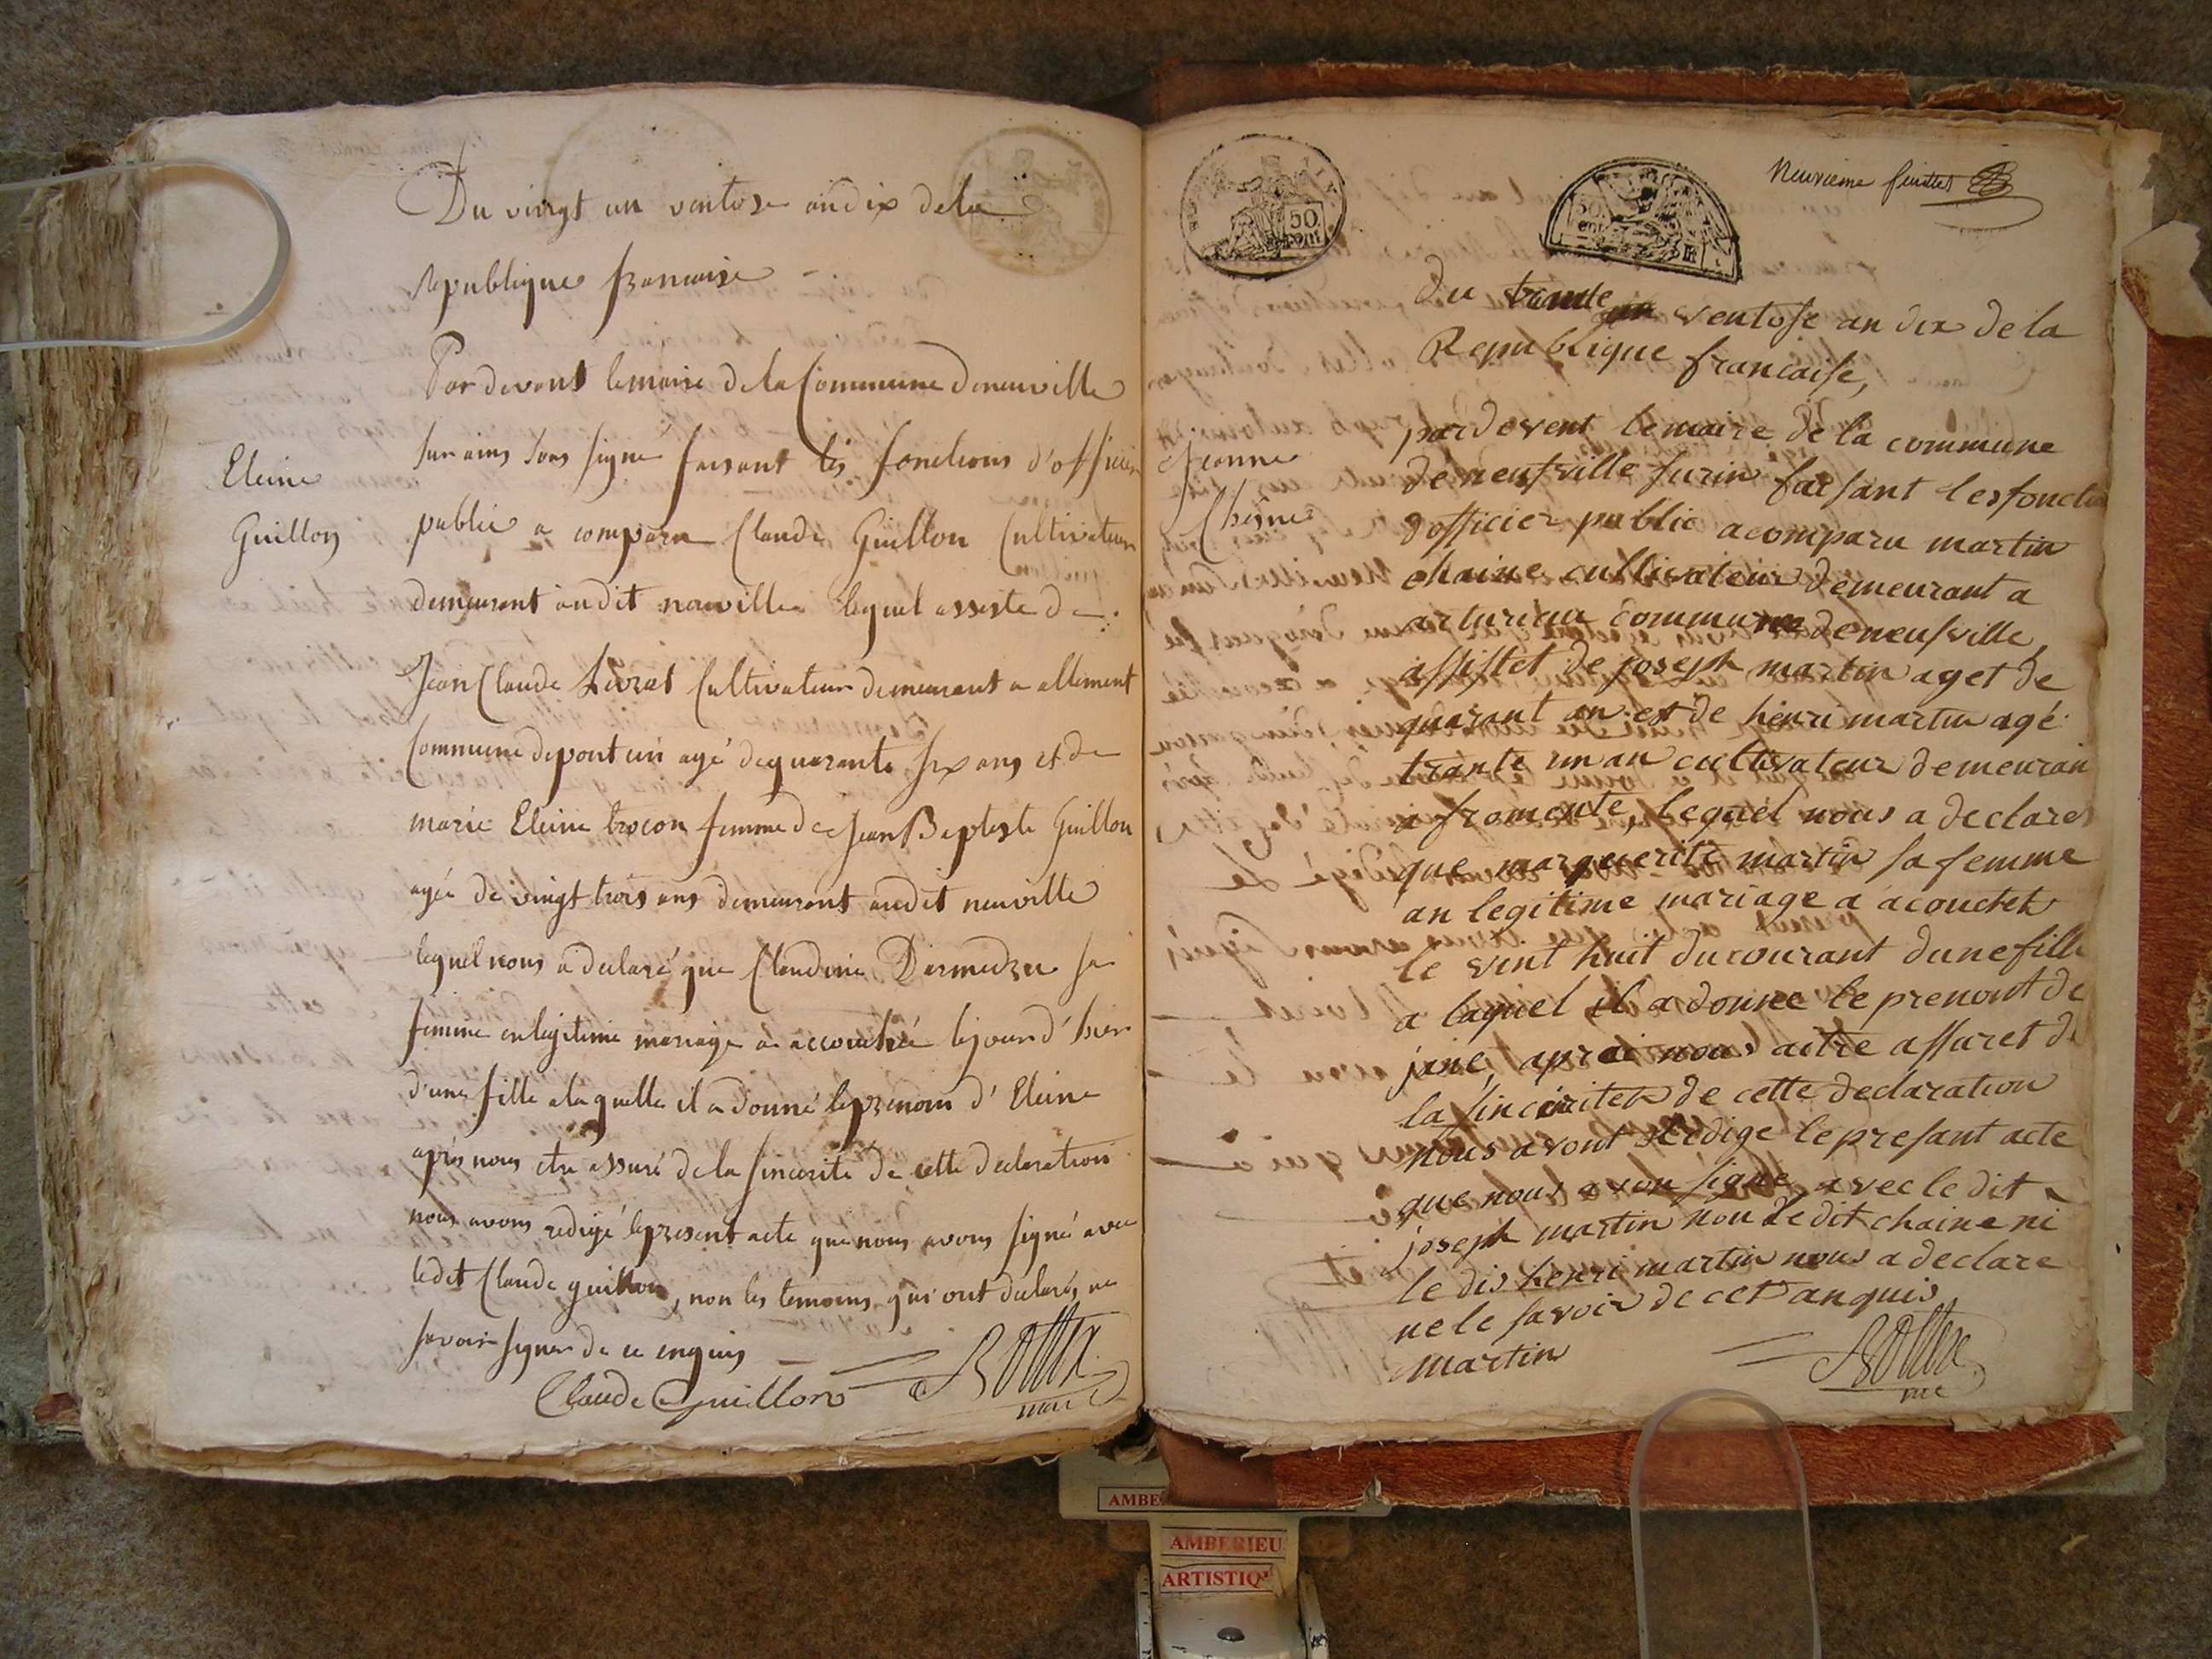 Du vingt un ventose an dix de la
Republique francaise
Eleine
Guillon
Par devant le maire de la Commune de neuville
sur ains sous signé faisant les fonctions d'officier
public a comparu Claude Guillon Cultivateur
demeurant audit neuville lequel assisté de
Jean Claude Livrat Cultivateur demeurant a allement
Commune de pont cin agé de quarante six ans et de
marie Eleine brocon femme de Jean Bapteste Guillon
agée de vingt trois ans demeurant audit neuville
lequel nous a declaré que Claudine Darmedzu sa
femme en legitime mariage a accouchée le jour d'hier
d'une fille a laquelle il a donné le prenom d'Eleine
après nous etre assuré de la sincerité de cette declaration
nous avons redigé le present acte que nous avons signé avec
ledit Claude guillon, non les temoins qui ont declarés ne
savoir signer de ce enquis
Claude Guillon
mai
Neuvieme feuillet
50
50
Du trante ventose an dix de la
Republique francaise,
Jeanne
Chêne
pardevent le maire de la commune
de neufville surin faisant les fonction
d'officier public a comparu martin
chaine cultivateur demeurant a
arturieu commune de neufville
assistet de joseph martin aget de
quarant an et de henri martin agé
trante un an cultivateur demeuran
a fromente, lequel nous a declaret
que marguerite martin sa femme
an legitime mariage a acouchet
le vint huit du courant dune fille
a laquel il a donnee le prenont de
jane, aprai nous aitre assuret de
la sinceritet de cette declaration
nous avont redige le presant acte
que nous avon signe avec le dit
joseph martin non le dit chaine ni
le dis henri martin nous a declare
ne le savoir de cet anquis
martin